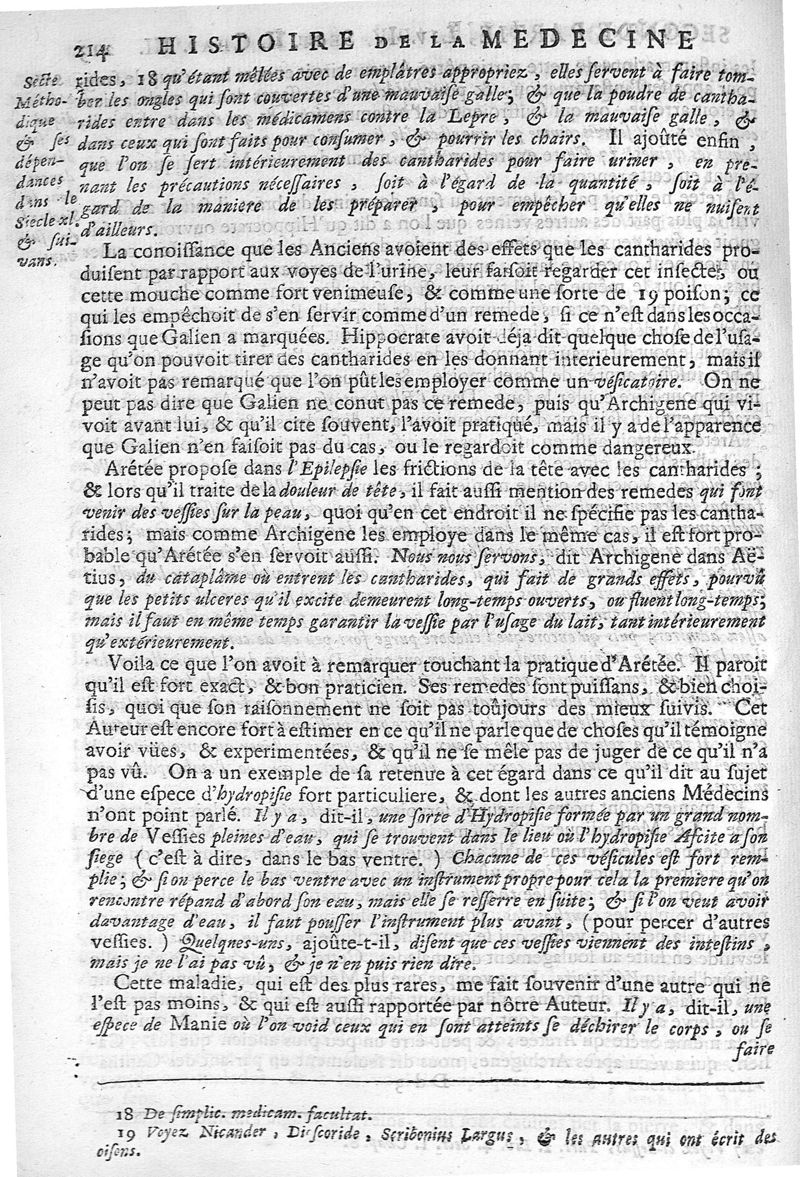 214 HISTOIRE DE LA MEDECINE
Secte
Métho-
dique
& ses
dépen-
dances
dans le
Siecle xl.
& sui-
vans.
rides, 18 qu'étant mêlées avec de emplâtres appropriez, elles servent à faire tom-
ber les ongles qui sont couvertes d'une mauvaise galle; & que la poudre de cantha-
rides entre dans les médicamens contre la Lepre, & la mauvaise galle, &
dans ceux qui sont faits pour consumer, & pourrir les chairs. Il ajoûté enfin,
que l'on se sert intérieurement des cantharides pour faire uriner, en pre-
nant les précautions nécessaires, soit à l'égard de la quantité, soit à l'é-
gard de la maniere de les préparer, pour empêcher qu'elles ne nuisent
d'ailleurs.
La conoissance que les Anciens avoient des effets que les cantharides pro-
duisent par rapport aux voyes de l'urine, leur faisoit regarder cet insecte, ou
cette mouche comme fort venimeuse, & comme une sorte de 19 poison; ce
qui les empêchoit de s'en servir comme d'un remede, si ce n'est dans les occa-
sions que Galien a marquées. Hippocrate avoit déja dit quelque chose de l'usa-
ge qu'on pouvoit tirer des cantharides en les donnant interieurement, mais il
n'avoit pas remarqué que l'on pût les employer comme un vésicatoire. On ne
peut pas dire que Galien ne conut pas ce remede, puis qu'Archigene qui vi-
voit avant lui, & qu'il cite souvent, l'avoit pratiqué, mais il y a de l'apparence
que Galien n'en faisoit pas du cas, ou le regardoit comme dangereux.
Arétée propose dans l'Epilepsie les frictions de la tête avec les cantharides;
& lors qu'il traite de la douleur de tête, il fait aussi mention des remedes qui font
venir des vessies sur la peau, quoi qu'en cet endroit il ne spécifie pas les cantha-
rides; mais comme Archigene les employe dans le même cas, il est fort pro-
bable qu'Arétée s'en servoit aussi. Nous nous servons, dit Archigene dans Aë-
tius, du cataplâme où entrent les cantharides, qui fait de grands effets, pourvû
que les petits ulceres qu'il excite demeurent long-temps ouverts, ou fluent long-temps;
mais il faut en même temps garantir la vessie par l'usage du lait, tant intérieurement
qu'extérieurement.
Voila ce que l'on avoit à remarquer touchant la pratique d'Arétée. Il paroit
qu'il est fort exact, & bon praticien. Ses remedes sont puissans, & bien choi-
sis, quoi que son raisonnement ne soit pas toûjours des mieux suivis. Cet
Auteur est encore fort à estimer en ce qu'il ne parle que de choses qu'il témoigne
avoir vües, & experimentées, & qu'il ne se mêle pas de juger de ce qu'il n'a
pas vû. On a un exemple de sa retenue à cet égard dans ce qu'il dit au sujet
d'une espece d'hydropisie fort particuliere, & dont les autres anciens Médecins
n'ont point parlé. Il y a, dit-il, une sorte d'Hydropisie formée par un grand nom-
bre de Vessies pleines d'eau, qui se trouvent dans le lieu où l'hydropisie Ascite a son
siege (c'est à dire, dans le bas ventre.) Chacune de ces vésicules est fort rem-
plie; & si on perce le bas ventre avec un instrument propre pour cela la premiere qu'on
rencontre répand d'abord son eau, mais elle se resserre en suite; & si l'on veut avoir
davantage d'eau, il faut pousser l'instrument plus avant, (pour percer d'autres
vessies.) Quelques-uns, ajoûte-t-il, disent que ces vessies viennent des intestins,
mais je ne l'ai pas vû, & je n'en puis rien dire.
Cette maladie, qui est des plus rares, me fait souvenir d'une autre qui ne
l'est pas moins, & qui est aussi rapportée par nôtre Auteur. Il y a, dit-il, une
espece de Manie où l'on void ceux qui en sont atteints se déchirer le corps, ou se
faire
18 De simplic. medicam. facultat.
19 Voyez Nicander, Dioscoride, Scribonius Largus, & les autres qui ont écrit des
oisens.